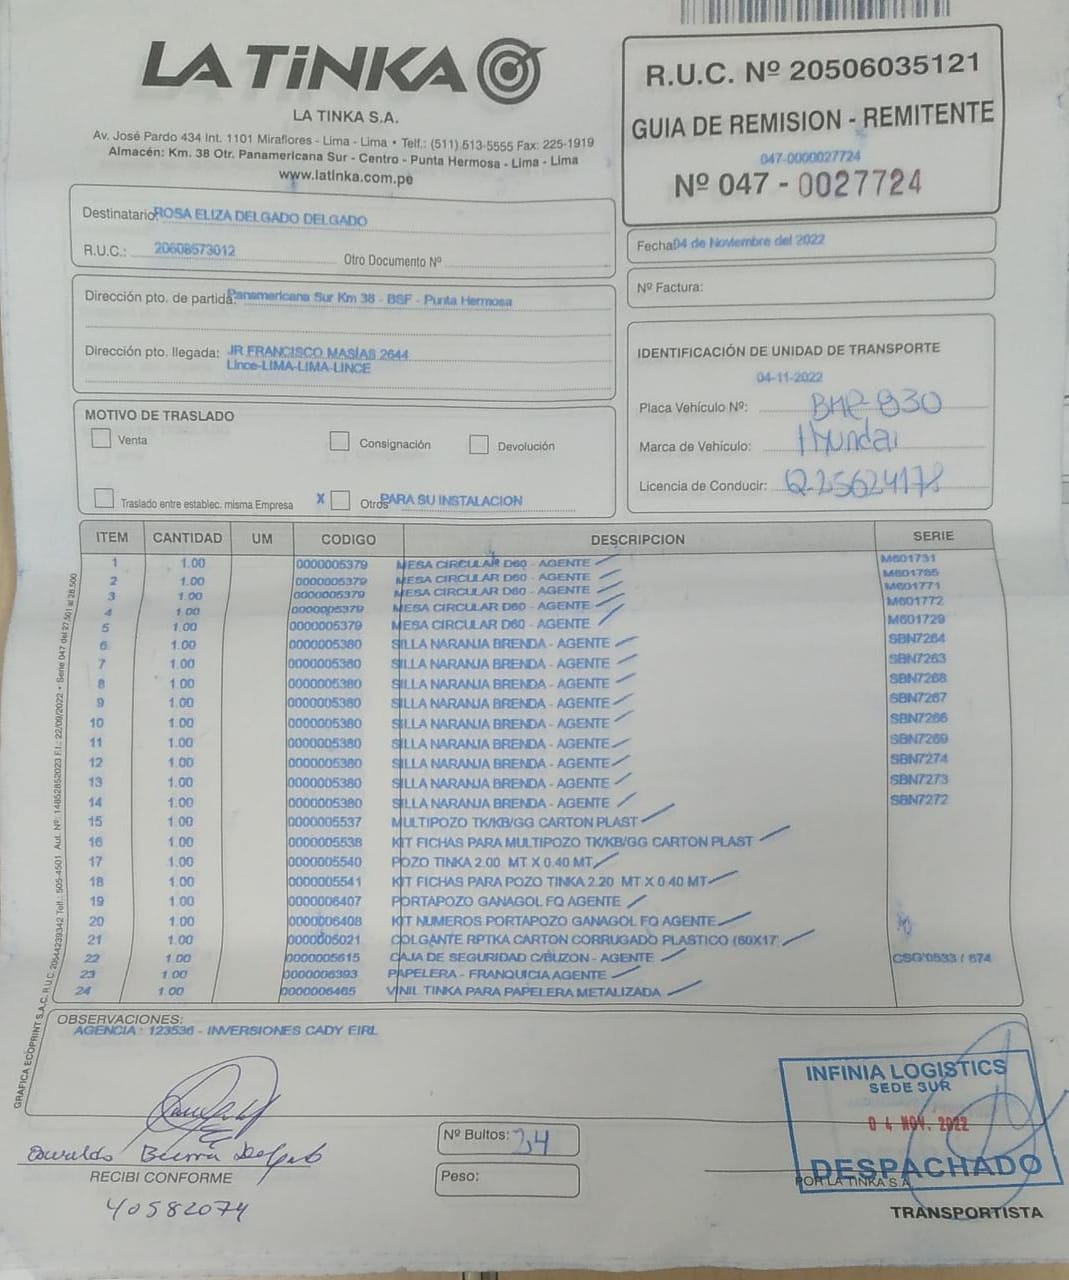 LA TiNKA
LA TINKA S.A.
Av. José Pardo 434 Int. 1101 Miraflores - Lima - Lima • Telf.: (511) 513-5555 Fax: 225-1919
Almacén: Km. 38 Otr. Panamericana Sur - Centro - Punta Hermosa - Lima - Lima
www.latinka.com.pe
R.U.C. Nº 20506035121
GUIA DE REMISION - REMITENTE
047-0000027724
Nº 047 - 0027724
Destinatario: ROSA ELIZA DELGADO DELGADO
R.U.C.: 20608573012 Otro Documento Nº
Fecha: 04 de Noviembre del 2022
Nº Factura:
Dirección pto. de partida: Panamericana Sur Km 38 - BSF - Punta Hermosa
Dirección pto. llegada: JR FRANCISCO MASÍAS 2644
Lince-LIMA-LIMA-LINCE
IDENTIFICACIÓN DE UNIDAD DE TRANSPORTE
04-11-2022
Placa Vehículo Nº: 830
Marca de Vehículo: Hyundai
Licencia de Conducir: Q-25624178
MOTIVO DE TRASLADO
Venta Consignación Devolución
Traslado entre establec. misma Empresa X Otros PARA SU INSTALACION
ITEM CANTIDAD UM CODIGO DESCRIPCION SERIE
1 1.00 0000005379 MESA CIRCULAR D60 - AGENTE M601731
2 1.00 0000005379 MESA CIRCULAR D60 - AGENTE M601765
3 1.00 0000005379 MESA CIRCULAR D60 - AGENTE M601771
4 1.00 0000005379 MESA CIRCULAR D60 - AGENTE M601772
5 1.00 0000005379 MESA CIRCULAR D60 - AGENTE M601729
6 1.00 0000005380 SILLA NARANJA BRENDA - AGENTE SBN7264
7 1.00 0000005380 SILLA NARANJA BRENDA - AGENTE SBN7263
8 1.00 0000005380 SILLA NARANJA BRENDA - AGENTE SBN7268
9 1.00 0000005380 SILLA NARANJA BRENDA - AGENTE SBN7267
10 1.00 0000005380 SILLA NARANJA BRENDA - AGENTE SBN7266
11 1.00 0000005380 SILLA NARANJA BRENDA - AGENTE SBN7269
12 1.00 0000005380 SILLA NARANJA BRENDA - AGENTE SBN7274
13 1.00 0000005380 SILLA NARANJA BRENDA - AGENTE SBN7273
14 1.00 0000005380 SILLA NARANJA BRENDA - AGENTE SBN7272
15 1.00 0000005537 MULTIPOZO TK/KB/GG CARTON PLAST
16 1.00 0000005538 KIT FICHAS PARA MULTIPOZO TK/KB/GG CARTON PLAST
17 1.00 0000005540 POZO TINKA 2.00 MT X 0.40 MT
18 1.00 0000005541 KIT FICHAS PARA POZO TINKA 2.20 MT X 0.40 MT
19 1.00 0000006407 PORTAPOZO GANAGOL FQ AGENTE
20 1.00 0000006408 KIT NUMEROS PORTAPOZO GANAGOL FQ AGENTE
21 1.00 0000005021 COLGANTE RPTKA CARTON CORRUGADO PLASTICO (60X17
22 1.00 0000005615 CAJA DE SEGURIDAD C/BUZON - AGENTE CSG'0533 / 674
23 1.00 0000006393 PAPELERA - FRANQUICIA AGENTE
24 1.00 0000006465 VINIL TINKA PARA PAPELERA METALIZADA
GRAFICA ECOPRINT S.A.C. R.U.C. 20544239342 Telf.: 505-4501 Aut. Nº: 14852852023 F.I.: 22/09/2022 • Serie 047 del 27,501 al 28,500
OBSERVACIONES:
AGENCIA : 123536 - INVERSIONES CADY EIRL
INFINIA LOGISTICS
SEDE SUR
04 NOV. 2022
DESPACHADO
POR LA TINKA S.A.
TRANSPORTISTA
Nº Bultos: 34
Peso:
Osvaldo Delgado
RECIBI CONFORME
40582074